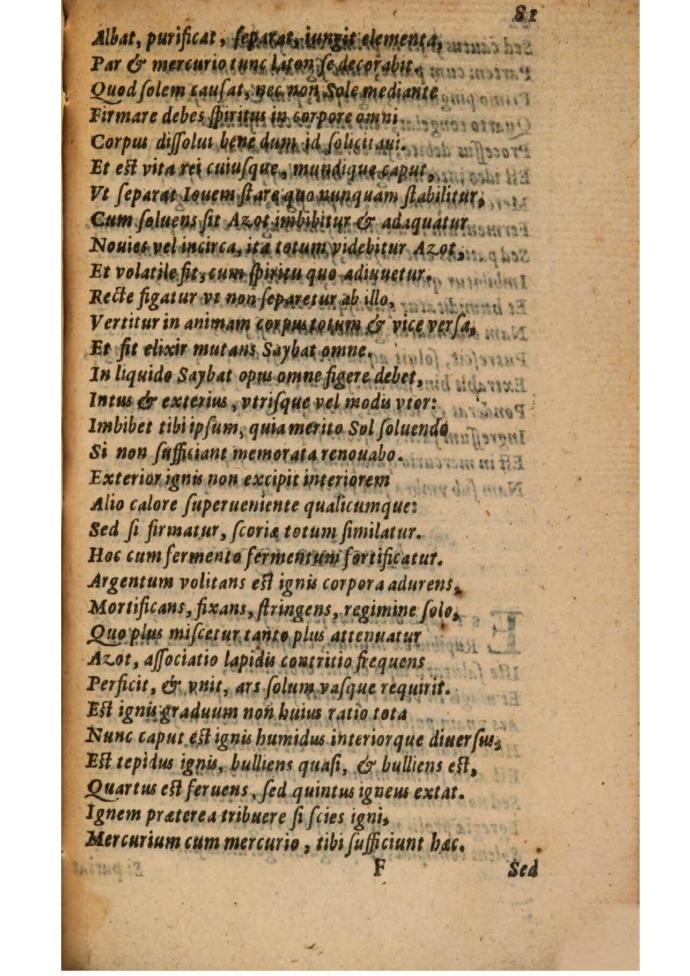 81
Albat, purificat, ſeparat, iungit elementa,
Par & mercurio tunc laton ſe decorabit,
Quod ſolem cauſat, nec non Sole mediante
Firmare debes ſpiritus in corpore omni.
Corpus diſſolui bene dum id ſolicitaui.
Et eſt vita rei cuiuſque, mundique caput,
Vt ſeparat Iouem ſtare quo nunquam ſtabilitur,
Cum ſoluens ſit Azot imbibitur & adaquatur
Nouies vel incirca, ita totum videbitur Azot,
Et volatile fit, cum ſpiritu quo adiuuetur.
Recte figatur vt non ſeparetur ab illo,
Vertitur in animam corpus totum & vice verſa,
Et fit elixir mutans Saybat omne.
In liquido Saybat opus omne figere debet,
Intus & exterius, vtriſque vel modis vtor:
Imbibet tibi ipſum, quia merito Sol ſoluendo
Si non ſufficiant memorata renouabo.
Exterior ignis non excipit interiorem
Alio calore ſuperueniente qualicumque:
Sed ſi firmatur, ſcoriæ totum ſimilatur.
Hoc cum fermento fermentum fortificatur.
Argentum volitans eſt ignis corpora adurens,
Mortificans, fixans, ſtringens, regimine ſolo,
Quo plus miſcetur tanto plus attenuatur
Azot, aſſociatio lapidis contritio frequens
Perficit, & vnit, ars ſolum vaſque requirit.
Eſt ignis graduum non huius ratio tota
Nunc caput eſt ignis humidus interiorque diuerſus,
Eſt tepidus ignis, bulliens quaſi, & bulliens eſt,
Quartus eſt feruens, ſed quintus igneus extat.
Ignem præterea tribuere ſi ſcies igni,
Mercurium cum mercurio, tibi ſufficiunt hæc.
F Sed